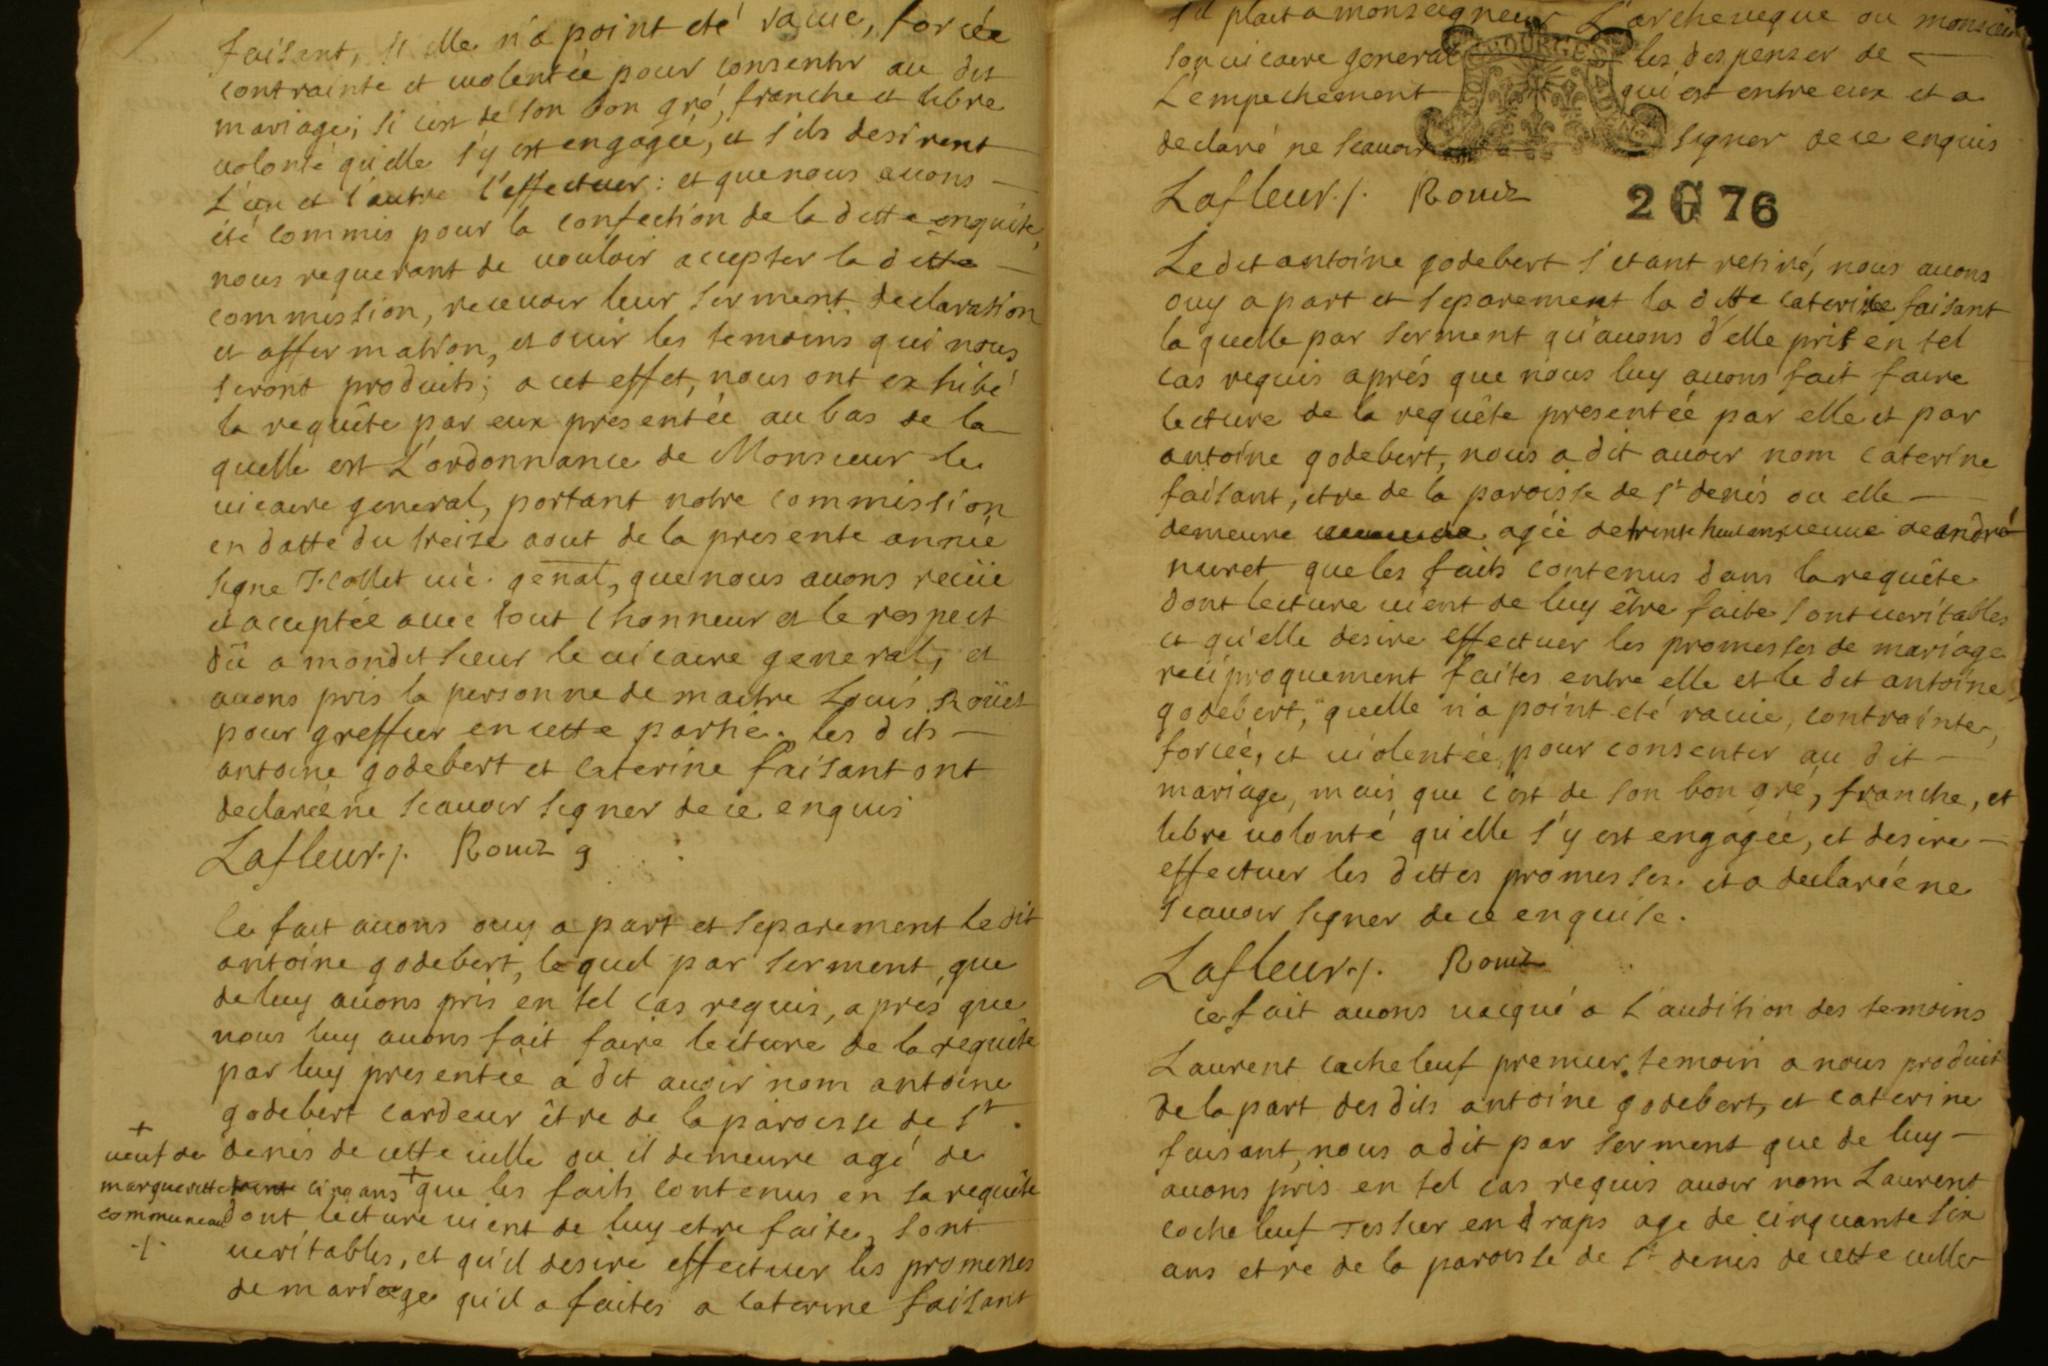 faisant, si elle n'a point eté rauie, forcée
contrainte et uiolentée pour consentir au dit
mariage; si c'est de son bon gré, franche et libre
uolonté qu'elle s'y est engagée, et s'ils desirent
L'un et l'autre l'effectuer: et que nous auons
été commis pour la confection de la ditte enquête,
nous requerant de uouloir accepter la ditte
commission, receuoir leur serment declaration
et affirmation, et ouir les temoins qui nous
seront produits; a cet effet, nous ont exhibé
la requête par eux presentée au bas de la
quelle est L'ordonnance de Monsieur le
uicaire general, portant notre commission
en datte du treize aout de la presente année
signé F. collet uic. genal, que nous auons reçüe
et acceptée auec tout l'honneur et le respect
dû a mondit sieur le uicaire general, et
auons pris la personne de maitre Louis Roüet
pour greffier en cette partie. les dits
antoine godebert et caterine faisant ont
declaré ne scauoir signer de ce enquis
Lafleur./. Rouet g
Ce fait auons ouy a part et separement le dit
antoine godebert, lequel par serment que
de luy auons pris en tel cas requis, aprés que
nous luy auons fait faire lecture de la requête
par luy presentée a dit auoir nom antoine
godebert cardeur être de la paroisse de St
denis de cette uille ou il demeure agé de
trente cinq ans + que les faits contenus en sa requête
dont lecture uient de luy etre faite, sont
ueritables, et qu'il desire effectuer les promesses
de mariage qu'il a faites a caterine faisant
+
ueuf de
marguerite
communeau
./.
s'il plait a monseigneur L'archeueque ou monsieur
son uicaire general les despenser de
L'empechement qui est entre eux et a
declaré ne scauoir signer de ce enquis
BOURGES
Lafleur./. Rouet
2 G 76
Ledit antoine godebert s'etant retiré, nous auons
ouy a part et separement la ditte caterine faisant
laquelle par serment qu'auons d'elle pris en tel
cas requis aprés que nous luy auons fait faire
lecture de la requête presentée par elle et par
antoine godebert, nous a dit auoir nom caterine
faisant, etre de la paroisse de St denis ou elle
demeure agée de trente huit ans ueuue de andré
nuret que les faits contenus dans la requête
dont lecture uient de luy être faite sont ueritables
et qu'elle desire effectuer les promesses de mariage
reciproquement faites entre elle et le dit antoine
godebert, quelle n'a point eté rauie, contrainte,
forcée, et uiolentée, pour consentir au dit
mariage, mais que c'est de son bon gré, franche, et
libre uolonté qu'elle s'y est engagée, et desire
effectuer les dittes promesses. et a declaré ne
scauoir signer de ce enquise.
Lafleur./. Rouet
ce fait auons uacqué a l'audition des temoins
Laurent cacheleuf premier temoin a nous produit
de la part des dits antoine godebert, et caterine
faisant, nous a dit par serment que de luy
auons pris en tel cas requis auoir nom Laurent
cacheleuf Tessier en draps age de cinquante six
ans etre de la paroisse de St denis de cette uille